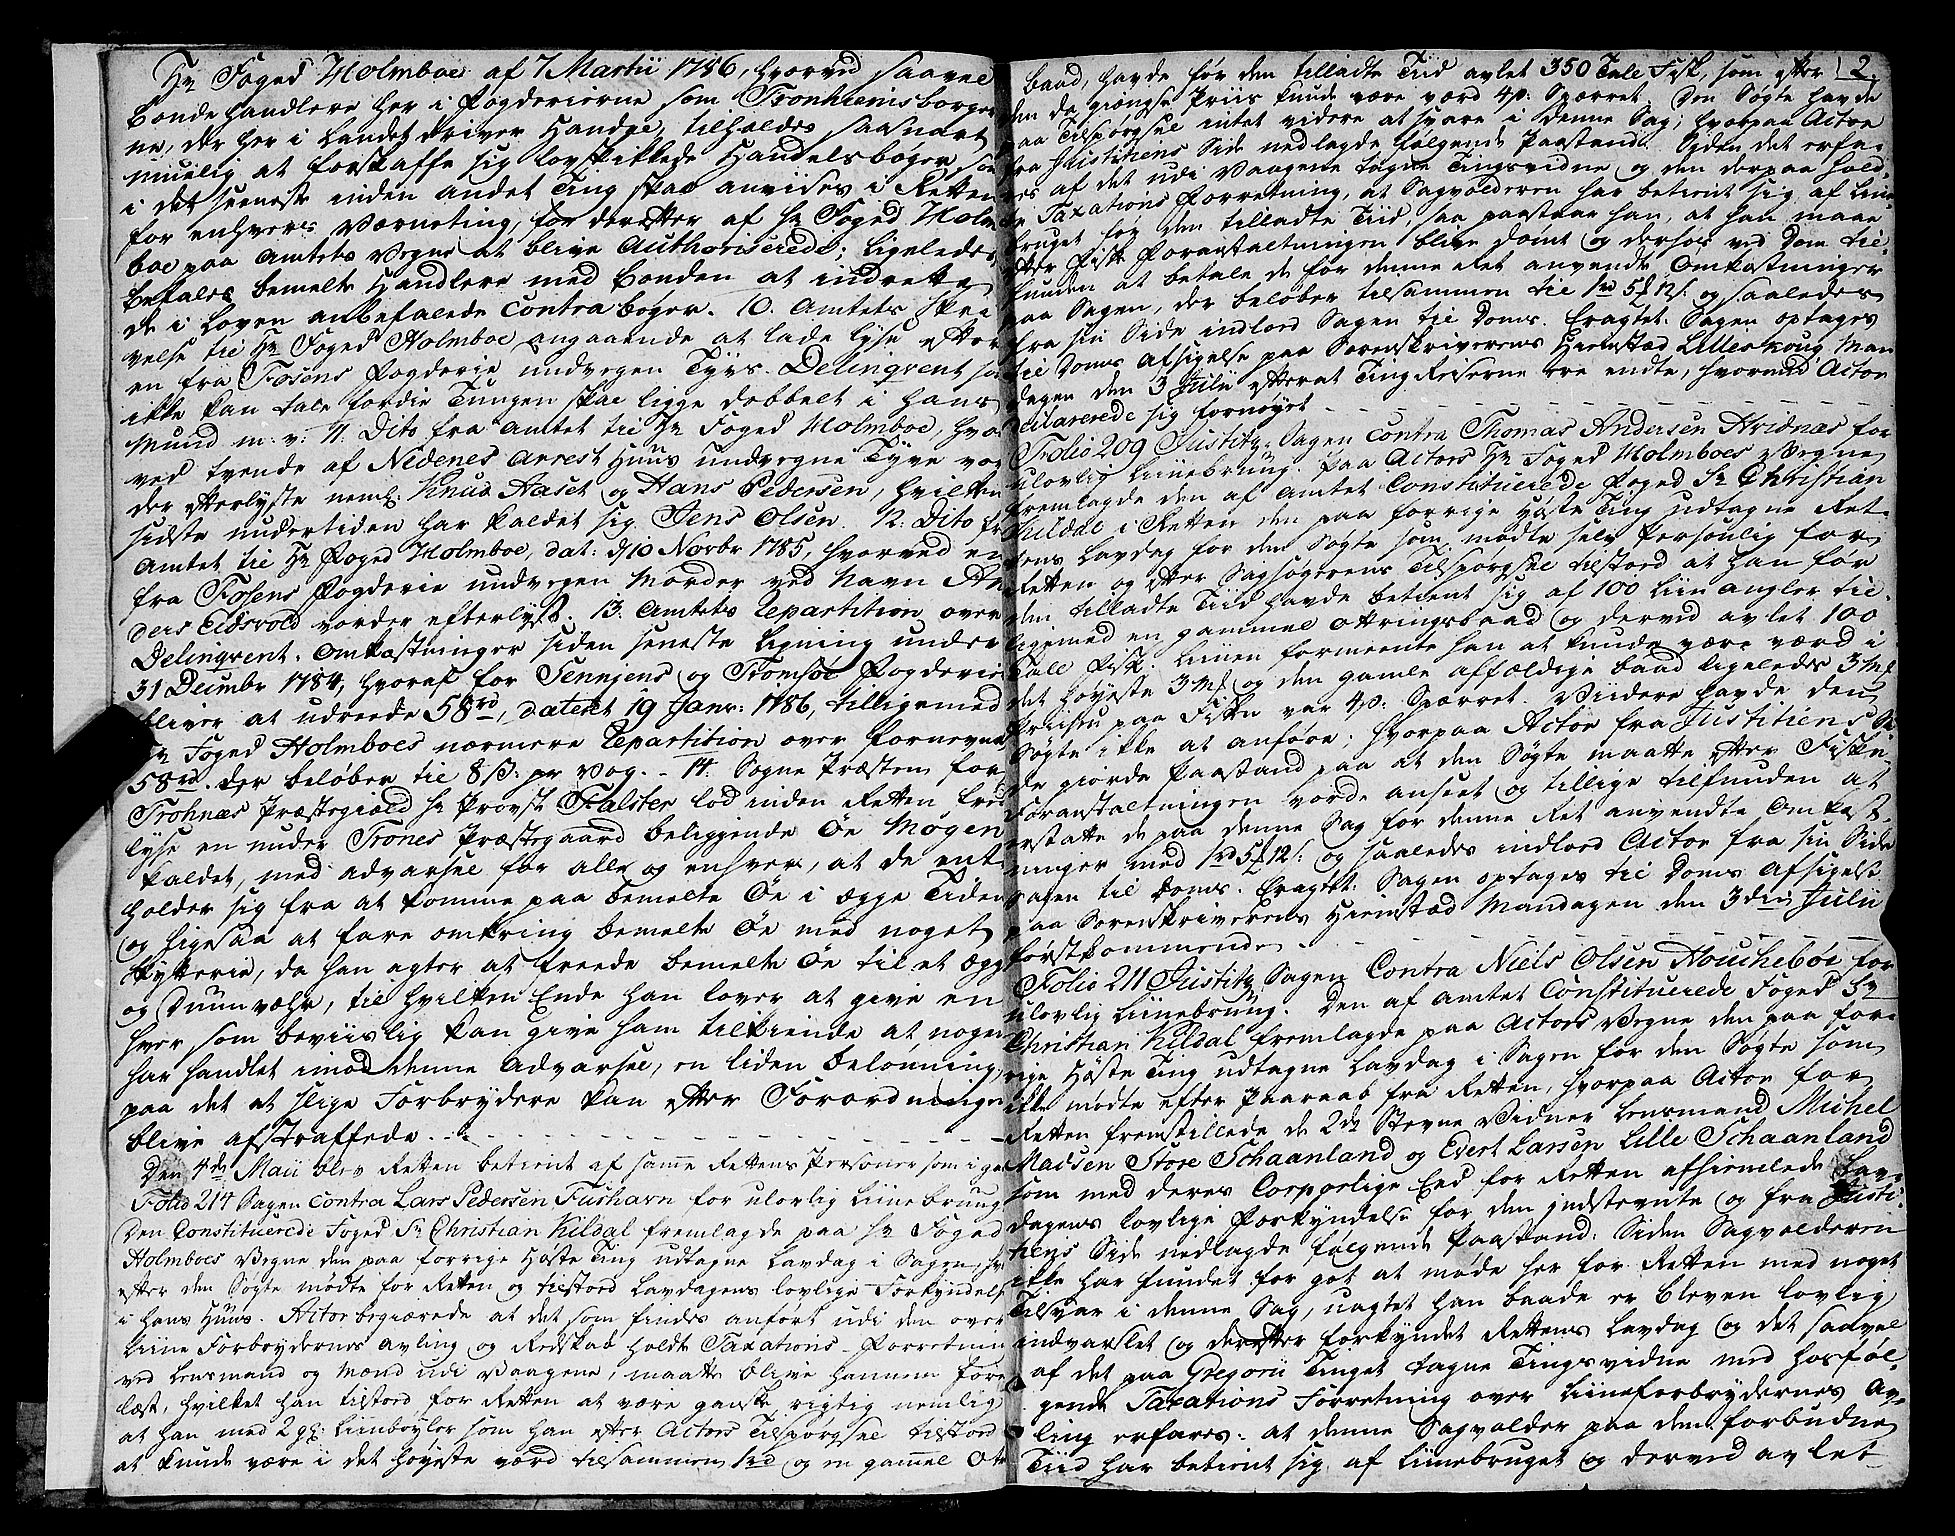 Hr Foged Holmboe af 7 Martii 1786, hvorved saavel
Bondehandlere her i Fogderierne som Tronhiemsborger
ne, der her i Landet driver Handel, tilholdes saasnart
muelig at forskaffe sig lovskikkede Handelsbøger, som
i det seeneste inden andet Ting skal anviises i Retten
for enhvers Værneting, for derefter af Hr Foged Holm
boe paa Amtets Vegne at blive Authoriserede; ligeledes
befales bemelte Handlere med Bonden at indrette
de i Loven anbefalede Contra bøger. 10. Amtets Skri
velse til Hr Foged Holmboe angaaende at lade lyse efter
en fra Fosens Fogderie undvegen Tyvs Delinqvent som
ikke kan tale fordie Tungen skal ligge dobbelt i hans
Mund m: v: 11. Dito fra Amtet til Hr Foged Holmboe, hvor
ved tvende af Nedenes Arrest Huus undvegne Tyve vor
der efterlyste neml: Knud Aaset og Hans Pedersen, hvilken
sidste undertiden har kaldet sig Jens Olsen. 12. Dito fra
Amtet til Hr Foged Holmboe, dat: d: 10 Novbr 1785, hvorved en
fra Fosens Fogderie undvegen Morder ved Navn An
ders Eidsvold vorder efterlyst. 13. Amtets Repartition over
Delinqvent Omkostninger siden seneste Ligning under
31 Decembr 1784, hvoraf for Sennjens og Tromsøe Fogderie
bliver at udreede 58rd, dateret 19 Janv: 1786, tilligemed
Hr Foged Holmboes nærmere Repartition over fornevnte
58rd. der beløber til 8 ß: pr Vog. - 14. Sogne Præsten for
Trohnæs Præstegield Hr Provst Falster lod inden Retten fred
lyse en under Trones Præstegaard beliggende Øe Møgen
kaldet, med advarsel for alle og enhver, at de ent
holder sig fra at komme paa bemelte Øe i ægge Tiden
og ligesaa at fare omkring bemelte Øe med noget
Skytterie, da han agter at freede bemelte Øe til et Ægg
og Duunvæhr, til hvilken Ende han lover at give en
hver som beviislig kan give ham tilkiende at nogen
har handlet imod denne Advarsel, en liden belønning,
paa det at slige Forbrydere kan efter Forordningen
blive afstraffede. - -
Den 4de Maii blev Retten betient af samme Rettens Personer som i gaar
Folio 214 Sagen Contra Lars Pedersen Fushavn for ulovlig Liinebrug
Den Constituerede Foged Sr Christian Kildal fremlagde paa Hr Foged
Holmboes Vegne den paa forrige Høste Ting udtagne Lavdag i Sagen, hvor
efter den Søgte mødte for Retten og tilstoed Lavdagens lovlige Forkyndelse
i hans Huus. Actor begiærede at det som findes anført udi den over
Liine Forbrydernes avling og Redskab holdte Taxations-Forretning
ved Lensmand og Mænd udi Vaagene, maatte blive hannem fore
læst, hvilket han tilstod for Retten at være ganske rigtig nemlig
at han med 2 gl: Liinbøyler som han efter Actors Tilspørgsel tilstod
at kunde være i det høyeste værd tilsammen 1rd og en gammel Ot
2.
baad, havde før den tilladte Tiid avlet 350 Tale Fisk, som efter
den da giængse Priis kunde være værd 4 ß: Sparret. Den Søgte havde
paa Tilspørgsel intet videre at svare i denne Sag; hvorpaa Actor
fra Justitiens Side nedlagde følgende Paastand. Siden det erfa
res af det udi Vaagene tagne Tingsvidne og den derpaa hold
te Taxations Forretning, at Sagvolderen har betient sig af Liine
bruget før den tilladte Tiid, saa paastaar han, at han maae
efter Fiske Foranstaltningen blive dømt og dersom ved Dom til
funden at betale de for denne Ret anvendte Omkostninger
paa Sagen, der beløber tilsammen til 1rd 5 12 ß. og saaledes
fra sin Side indlod Sagen til Doms. Eragtet. Sagen optages
til Doms Afsigelse paa Sorenskriverens Hiemstæd Lilleskoug Man
dagen den 3 Julii efterat Ting Reiserne ere endte, hvormed Actor
declarerede sig fornøyet - - -
Folio 209 Justitz-Sagen Contra Thomas Andersen Hvidnæs for
ulovlig Liinebrug. Paa Actors Hr Foged Holmboes Vegne
fremlagde den af Amtet Constituerede Foged Sr Christian
Kildal i Retten den paa forrige Høste Ting udtagne Ret
tens Lavdag for den Søgte som mødte selv Personlig for
Retten og efter Sagsøgerens Tilspørgsel tilstoed at han før
den tilladte Tiid havde betient sig af 100 Liin angler til
ligemed en gammel ottringsbaad og derved avlet 100
Tall Fisk. Liinen formeente han at kunde være værd i
det høyeste 3 Mk og den gamle affældige baad ligeledes 3 Mk
Prisen paa Fisken var 4 ß: Sparret. Viidere havde den
Søgte ikke at anføre; hvorpaa Actor fra Justitiens Si
de giorde Paastand paa at den Søgte maatte efter Fiske
Foranstaltningen vorde anseet og tillige tilfunden at
erstatte de paa denne Sag for denne Ret anvendte Omkost
ninger med 1rd 5 12 ß: og saaledes indlod Actor fra sin Side
Sagen til Doms. Eragtet: Sagen optages til Doms Afsigelse
paa Sorenskriverens Hiemstæd Mandagen den 3die Julii
førstkommende. - -
Folio 211 Justitz Sagen Contra Niels Olsen Houchebøe for
ulovlig Liinebrug. Den af Amtet Constituerede Foged Sr
Christian Kildal fremlagde paa Actors Vegne den paa for
rige Høste Ting udtagne Lavdag i Sagen for den Søgte som
ikke mødte efter Paaraab fra Retten, hvorpaa Actor for
Retten fremstillede de 2de Stevne Vidner Lensmand Michel
Madsen Store Schaanland og Edert Larsen Lille Schaanland
som med deres Corporlige Eed for Retten afhiemlede Lav
dagens lovlige Forkyndelse for den indstevnte og fra Justi
tiens Side nedlagde følgende Paastand: Siden Sagvolderen
ikke har fundet for got at møde her for Retten med noget
Tilsvar i denne Sag, uagtet han baade er bleven lovlig
indvarslet og derefter forkyndet Rettens Lavdag og det saavel
af det paa Gregorii Tinget tagne Tingsvidne med hosføl
gende Taxations Forretning over Liineforbrydernes Av
ling erfares: at denne Sagvolder paa den forbudne
Tiid har betient sig af Liinebruget og derved avlet